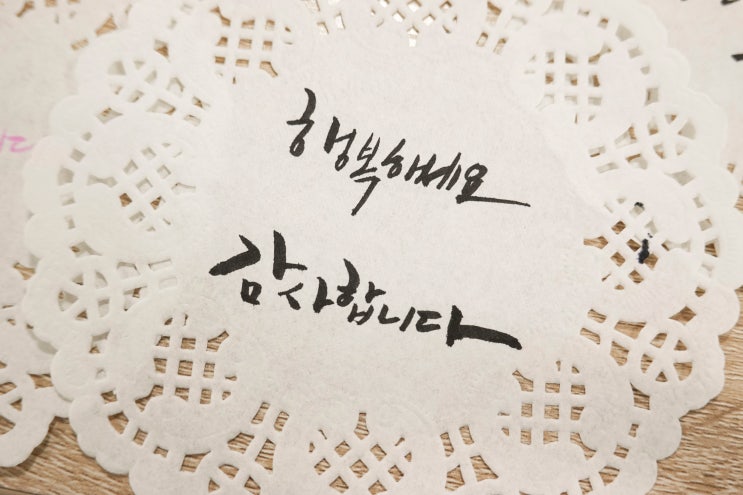 행복하세요
감사합니다